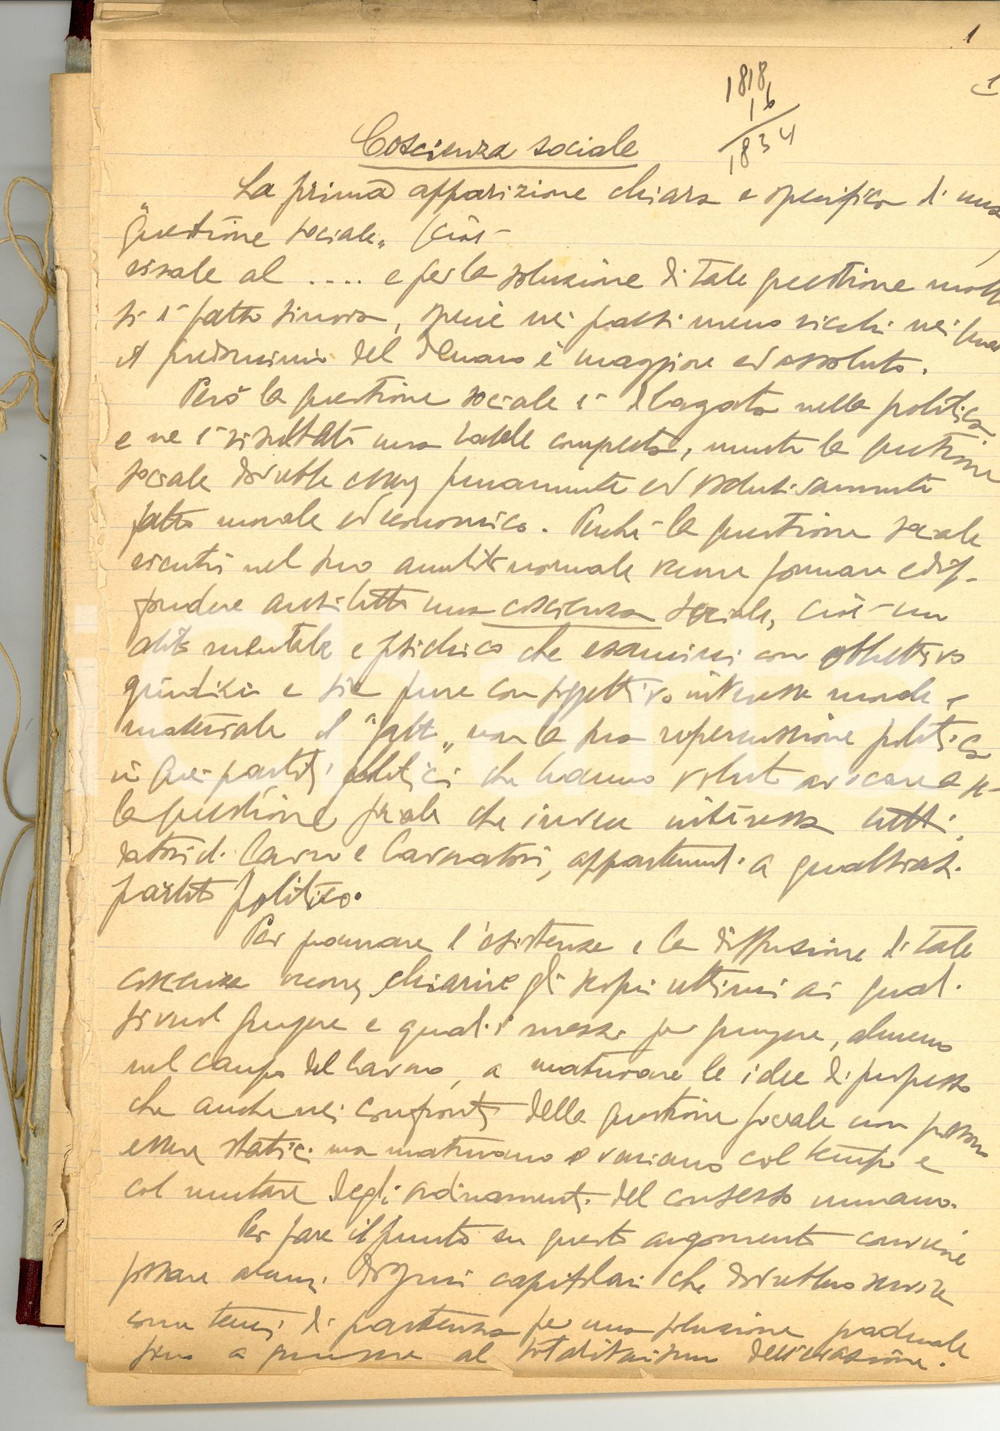 1
1
1818
16
1834
Coscienza sociale
La prima apparizione chiara e specifica di una
"questione sociale" (cioè
risale al .... e per la soluzione di tale questione molto
si è fatto sinora, specie nei paesi meno ricchi nei quali
il predominio del denaro è maggiore ed assoluto.
Però la questione sociale è dilagata nella politica
e ne è risultata una completa, mentre la questione
sociale dovrebbe essere puramente ed
fatto morale ed economico. Perché la questione sociale
rientri nel suo ambito normale occorre formare e dif-
fondere anzitutto una coscienza sociale, cioè un
abito mentale e psichico che esamini con obbiettivo
giudizio e sia pure con soggettivo interesse morale e
materiale il "fatto" non la sua ripercussione politica
in quei partiti politici che hanno voluto avocare a sé
la questione sociale che invece interessa tutti,
datori di lavoro e lavoratori, appartenenti a qualsiasi
partito politico.
Per formare l'esistenza e la diffusione di tale
coscienza occorre chiarire gli scopi ultimi ai quali
si vuol giungere e quali i mezzi per giungere, almeno
nel campo del lavoro, a maturare le idee di progresso
che anche nei confronti della questione sociale non possono
essere statici ma maturano e variano col tempo e
col mutare degli ordinamenti del consesso umano.
Per fare il punto su questo argomento conviene
fissare alcuni capisaldi che dovrebbero servire
come temi di partenza per una soluzione graduale
fino a giungere al